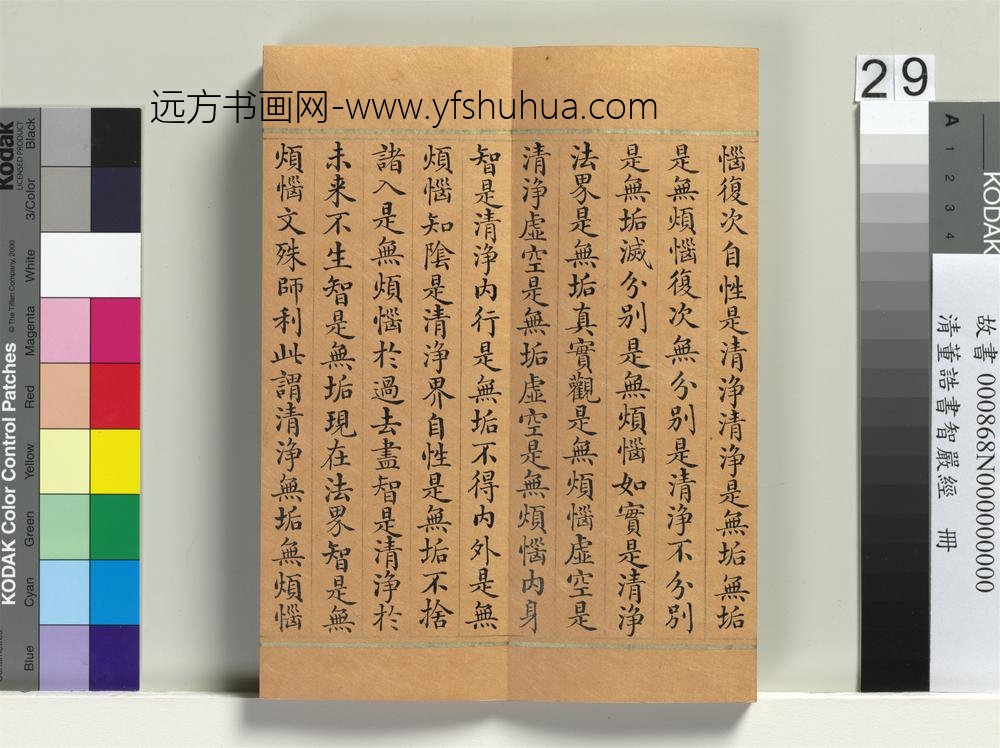 远方书画网-www.yfshuhua.com
惱復次自性是清淨清淨是無垢無垢
是無煩惱復次無分別是清淨不分別
是無垢滅分別是無煩惱如實是清淨
法界是無垢真實觀是無煩惱虛空是
清淨虛空是無垢虛空是無煩惱內身
智是清淨內行是無垢不得內外是無
煩惱知陰是清淨界自性是無垢不捨
諸入是無煩惱於過去盡智是清淨於
未来不生智是無垢現在法界智是無
煩惱文殊師利此謂清淨無垢無煩惱
29
故書 000868N000000000
清董誥書智嚴經 冊
KODAK Color Control Patches
© The Tiffen Company, 2000
Kodak
LICENSED PRODUCT
Blue
Cyan
Green
Yellow
Red
Magenta
White
3/Color
Black
A
1
2
3
4
KODAK